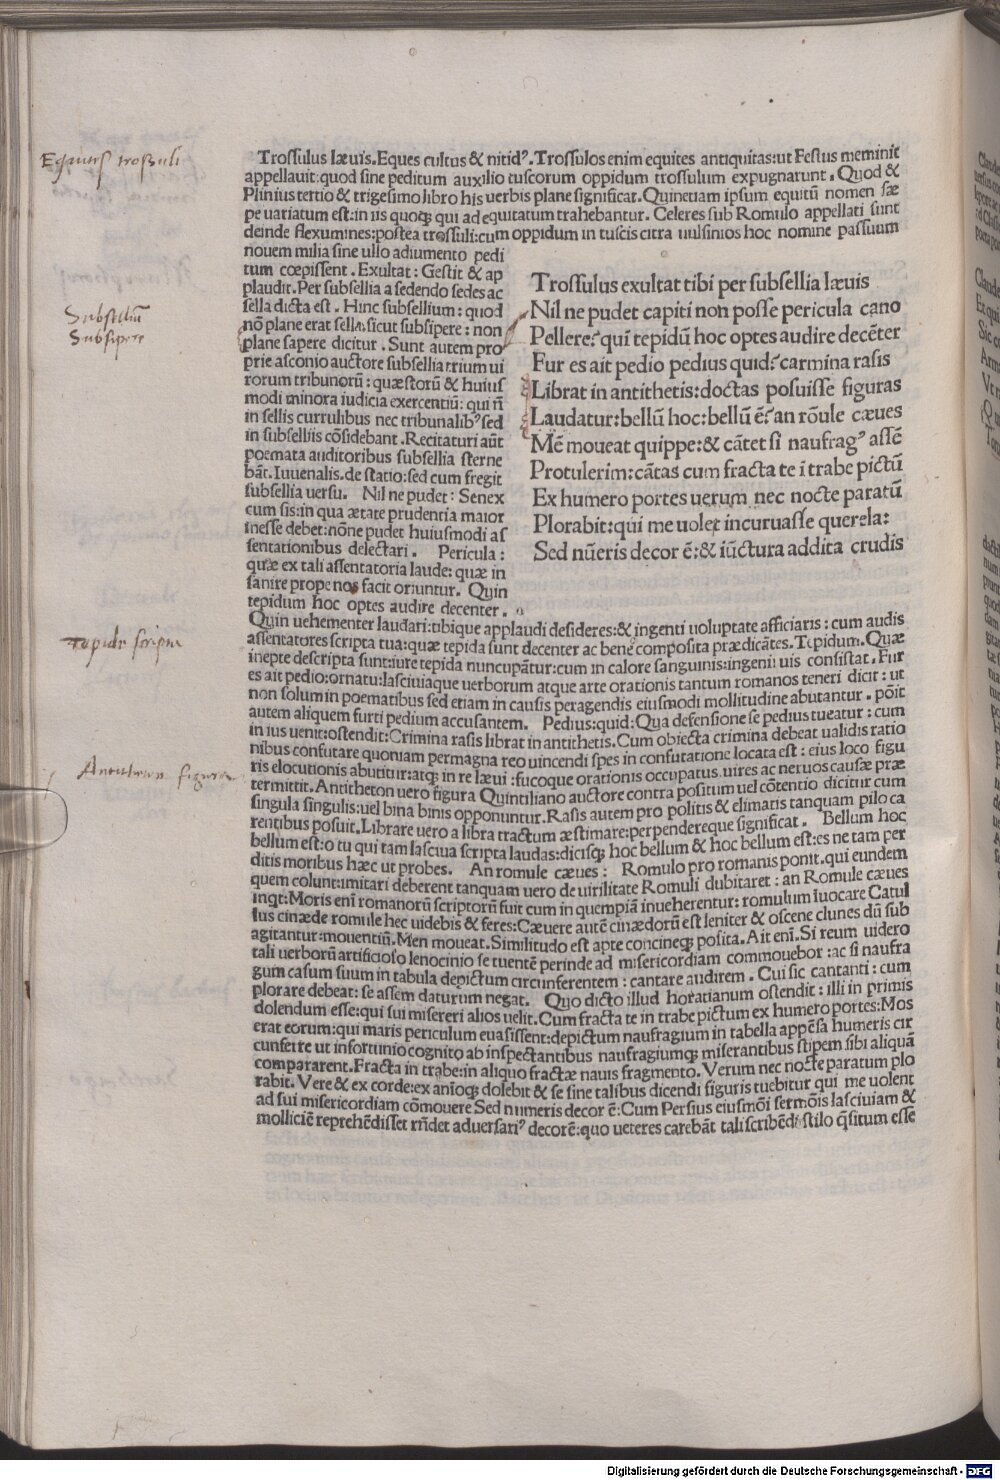 Equites trossuli
Trossulus læuis. Eques cultus & nitidꝰ. Trossulos enim equites antiquitas: ut Festus meminit
appellauit: quod sine peditum auxilio tuscorum oppidum trossulum expugnarunt. Quod &
Plinius tertio & trigesimo libro his uerbis plane significat. Quinetiam ipsum equitū nomen sæ
pe uariatum est: in iis quoqꝫ qui ad equitatum trahebantur. Celeres sub Romulo appellati sunt
deinde flexumines: postea trossuli: cum oppidum in tuscis citra uulsinios hoc nomine passuum
nouem milia sine ullo adiumento pedi
tum cœpissent. Exultat: Gestit & ap
plaudit. Per subsellia a sedendo sedes ac
sella dicta est. Hinc subsellium: quod
nō plane erat sella, sicut subsipere: non
plane sapere dicitur. Sunt autem pro
prie asconio auctore subsellia trium ui
rorum tribunorū: quæstorū & huius
modi minora iudicia exercentiū: qui ñ
in sellis currulibus nec tribunalibꝰ sed
in subselliis cōsidebant. Recitaturi aūt
poemata auditoribus subsellia sterne
bāt. Iuuenalis. de statio: sed cum fregit
subsellia uersu. Nil ne pudet: Senex
cum sis: in qua ætate prudentia maior
inesse debet: nōne pudet huiusmodi as
sentationibus delectari. Pericula:
quæ ex tali assentatoria laude: quæ in
sanire prope nos facit oriuntur. Quin
tepidum hoc optes audire decenter.
Subselliū
Subsipere
Trossulus exultat tibi per subsellia læuis
Nil ne pudet capiti non posse pericula cano
Pellere? qui tepidū hoc optes audire decēter
Fur es ait pedio pedius quid? carmina rasis
Librat in antithetis: doctas posuisse figuras
Laudatur: bellū hoc: bellū ē? an rōule cæues
Mē moueat quippe: & cātet si naufragꝰ assē
Protulerim: cātas cum fracta te ī trabe pictū
Ex humero portes uerum nec nocte paratū
Plorabit: qui me uolet incuruasse querela:
Sed nūeris decor ē: & iūctura addita crudis
Quin uehementer laudari: tibique applaudi desideres: & ingenti uoluptate afficiaris: cum audis
assentatores scripta tua: quæ tepida sunt decenter ac bene composita prædicātes. Tepidum. Quæ
inepte descripta sunt: iure tepida nuncupātur: cum in calore sanguinis: ingenii uis consistat. Fur
es ait pedio: ornatu: lasciuiaque uerborum atque arte orationis tantum romanos teneri dicit: ut
non solum in poematibus sed etiam in causis peragendis eiusmodi mollitudine abutantur. pōit
autem aliquem furti pedium accusantem. Pedius: quid: Qua defensione se pedius tueatur: cum
in ius uenit: ostendit: Crimina rasis librat in antithetis. Cum obiecta crimina debeat ualidis ratio
nibus confutare quoniam permagna reo uincendi spes in confutatione locata est: eius loco figu
ris elocutionis abutitur: atqꝫ in re læui: fucoque orationis occupatus uires ac neruos causæ præ
termittit. Antitheton uero figura Quintiliano auctore contra positum uel cōtentio dicitur cum
singula singulis: uel bina binis opponuntur. Rasis autem pro politis & elimatis tanquam pilo ca
rentibus posuit. Librare uero a libra tractum æstimare: perpendereque significat. Bellum hoc
bellum est: o tu qui tam lasciua scripta laudas: dicisqꝫ hoc bellum & hoc bellum est: es ne tam per
ditis moribus hæc ut probes. An romule cæues: Romulo pro romanis ponit. qui eundem
quem colunt: imitari deberent tanquam uero de uirilitate Romuli dubitaret: an Romule cæues
inqt: Moris enī romanorū scriptorū fuit cum in quempiā inueherentur: romulum iuocare Catul
lus cinæde romule hec uidebis & feres: Cæuere autē cinædorū est leniter & oscene clunes dū sub
agitantur: mouentiū. Men moueat. Similitudo est apte concineqꝫ posita. Ait enī. Si reum uidero
tali uerborū artificioso lenocinio se tuentē perinde ad misericordiam commouebor: ac si naufra
gum casum suum in tabula depictum circunferentem: cantare audirem. Cui sic cantanti: cum
plorare debeat: se assem daturum negat. Quo dicto illud horatianum ostendit: illi in primis
dolendum esse: qui sui misereri alios uelit. Cum fracta te in trabe pictum ex humero portes: Mos
erat eorum: qui maris periculum euasissent: depictum naufragium in tabella appēsa humeris cir
cunferre ut infortunio cognito ab inspectantibus naufragiumqꝫ miserantibus stipem sibi aliquā
compararent. Fracta in trabe: in aliquo fractæ nauis fragmento. Verum nec nocte paratum plo
rabit. Vere & ex corde: ex anīoqꝫ dolebit & se sine talibus dicendi figuris tuebitur qui me uolent
ad sui misericordiam cōmouere Sed numeris decor ē: Cum Persius eiusmōi sermōis lasciuiam &
molliciē reprehēdisset rñdet aduersariꝰ decorē: quo ueteres carebāt tali scribēdi stilo q̄situm esse
Tepide scripta
Antitheton figura
Digitalisierung gefördert durch die Deutsche Forschungsgemeinschaft - DFG